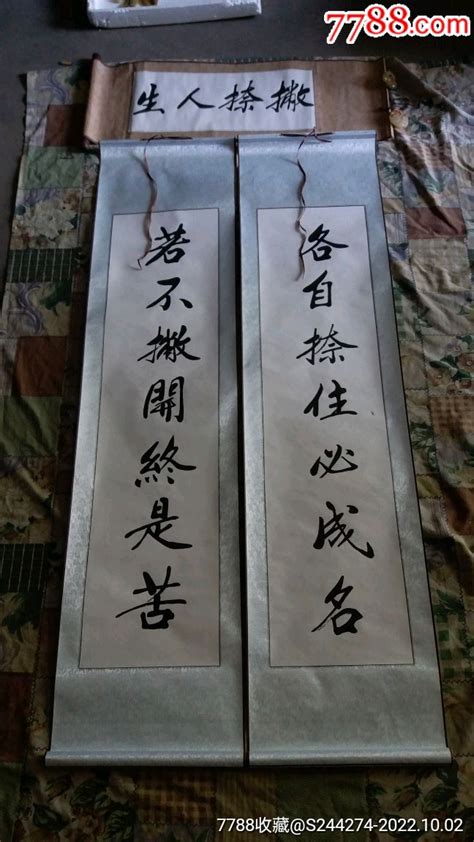 7788.com
撇捺人生
各自捺住必成名
若不撇開終是苦
7788收藏@S244274-2022.10.02